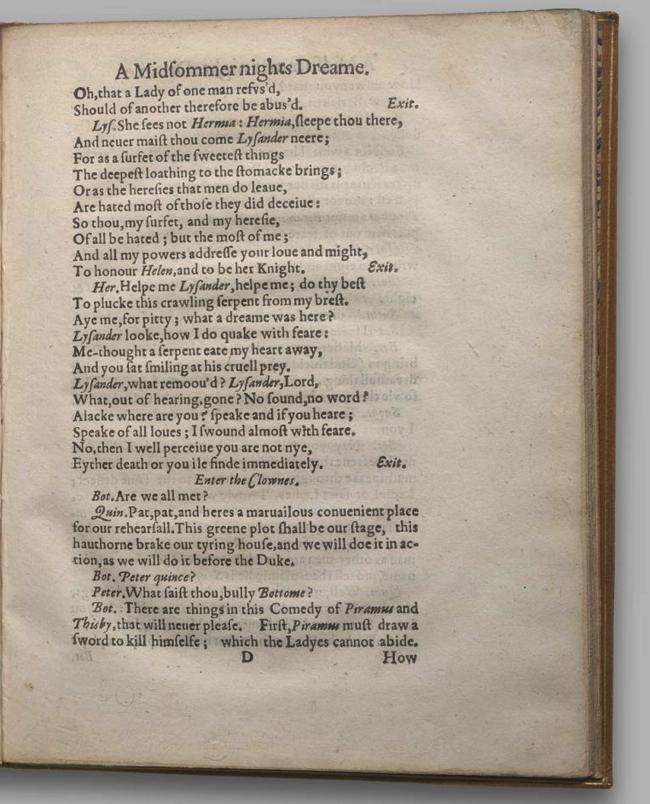 A Midſommer nights Dreame.
Oh, that a Lady of one man refvs'd,
Should of another therefore be abus'd. Exit.
Lyſ. She ſees not Hermia: Hermia, ſleepe thou there,
And neuer maiſt thou come Lyſander neere;
For as a ſurfet of the ſweeteſt things
The deepeſt loathing to the ſtomacke brings;
Or as the hereſies that men do leaue,
Are hated moſt of thoſe they did deceiue:
So thou, my ſurfet, and my hereſie,
Of all be hated; but the moſt of me;
And all my powers addreſſe your loue and might,
To honour Helen, and to be her Knight. Exit.
Her. Helpe me Lyſander, helpe me; do thy beſt
To plucke this crawling ſerpent from my breſt.
Aye me, for pitty; what a dreame was here?
Lyſander looke, how I do quake with feare:
Me-thought a ſerpent eate my heart away,
And you ſat ſmiling at his cruell prey.
Lyſander, what remoou'd? Lyſander, Lord,
What, out of hearing, gone? No ſound, no word?
Alacke where are you? ſpeake and if you heare;
Speake of all loues; I ſwound almoſt with feare.
No, then I well perceiue you are not nye,
Eyther death or you ile finde immediately. Exit.
Enter the Clownes.
Bot. Are we all met?
Quin. Pat, pat, and heres a maruailous conuenient place
for our rehearſall. This greene plot ſhall be our ſtage, this
hauthorne brake our tyring houſe, and we will doe it in ac-
tion, as we will do it before the Duke.
Bot. Peter quince?
Peter. What ſaiſt thou, bully Bottome?
Bot. There are things in this Comedy of Piramus and
Thisby, that will neuer pleaſe. Firſt, Piramus muſt draw a
ſword to kill himſelfe; which the Ladyes cannot abide.
D How